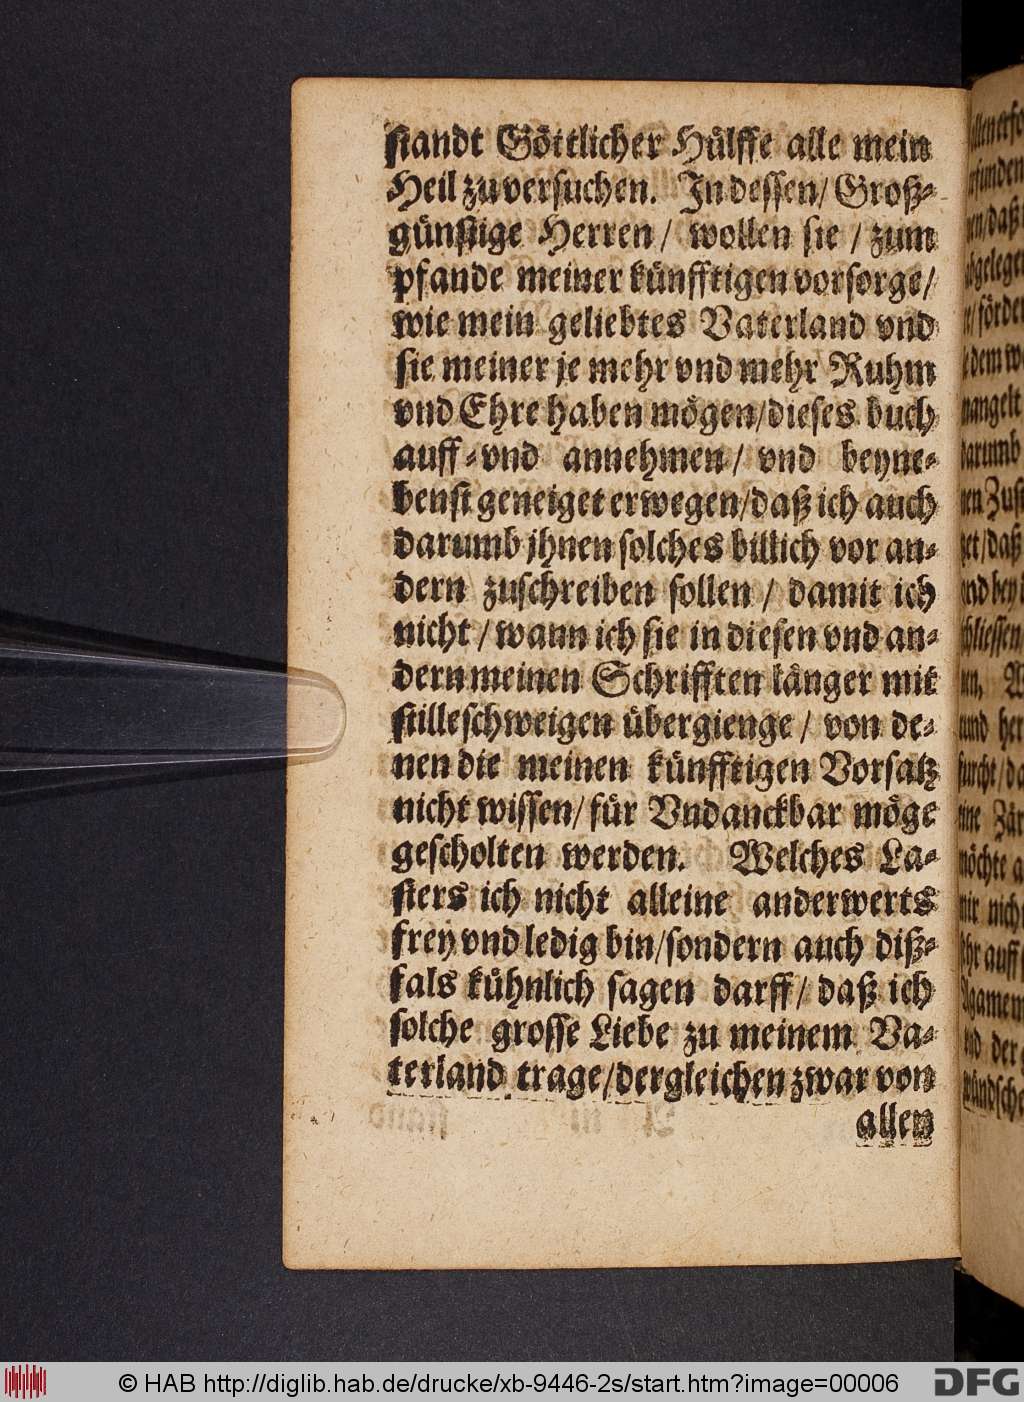 standt Göttlicher Hülffe alle mein
Heil zu versuchen. In dessen/ Groß-
günstige Herren/ wollen sie / zum
pfande meiner künfftigen vorsorge/
wie mein geliebtes Vaterland vnd
sie meiner je mehr vnd mehr Ruhm
vnd Ehre haben mögen/dieses buch
auff-vnd annehmen/ vnd beyne-
benst geneiget erwegen/daß ich auch
darumb jhnen solches billich vor an-
dern zuschreiben sollen / damit ich
nicht / wann ich sie in diesen vnd an-
dern meinen Schrifften länger mit
stilleschweigen übergienge / von de-
nen die meinen künfftigen Vorsatz
nicht wissen/ für Vndanckbar möge
gescholten werden. Welches La-
sters ich nicht alleine anderwerts
frey vnd ledig bin/sondern auch diß-
fals kühnlich sagen darff/ daß ich
solche grosse Liebe zu meinem Va-
terland trage/dergleichen zwar von
allen
© HAB http://diglib.hab.de/drucke/xb-9446-2s/start.htm?image=00006
DFG